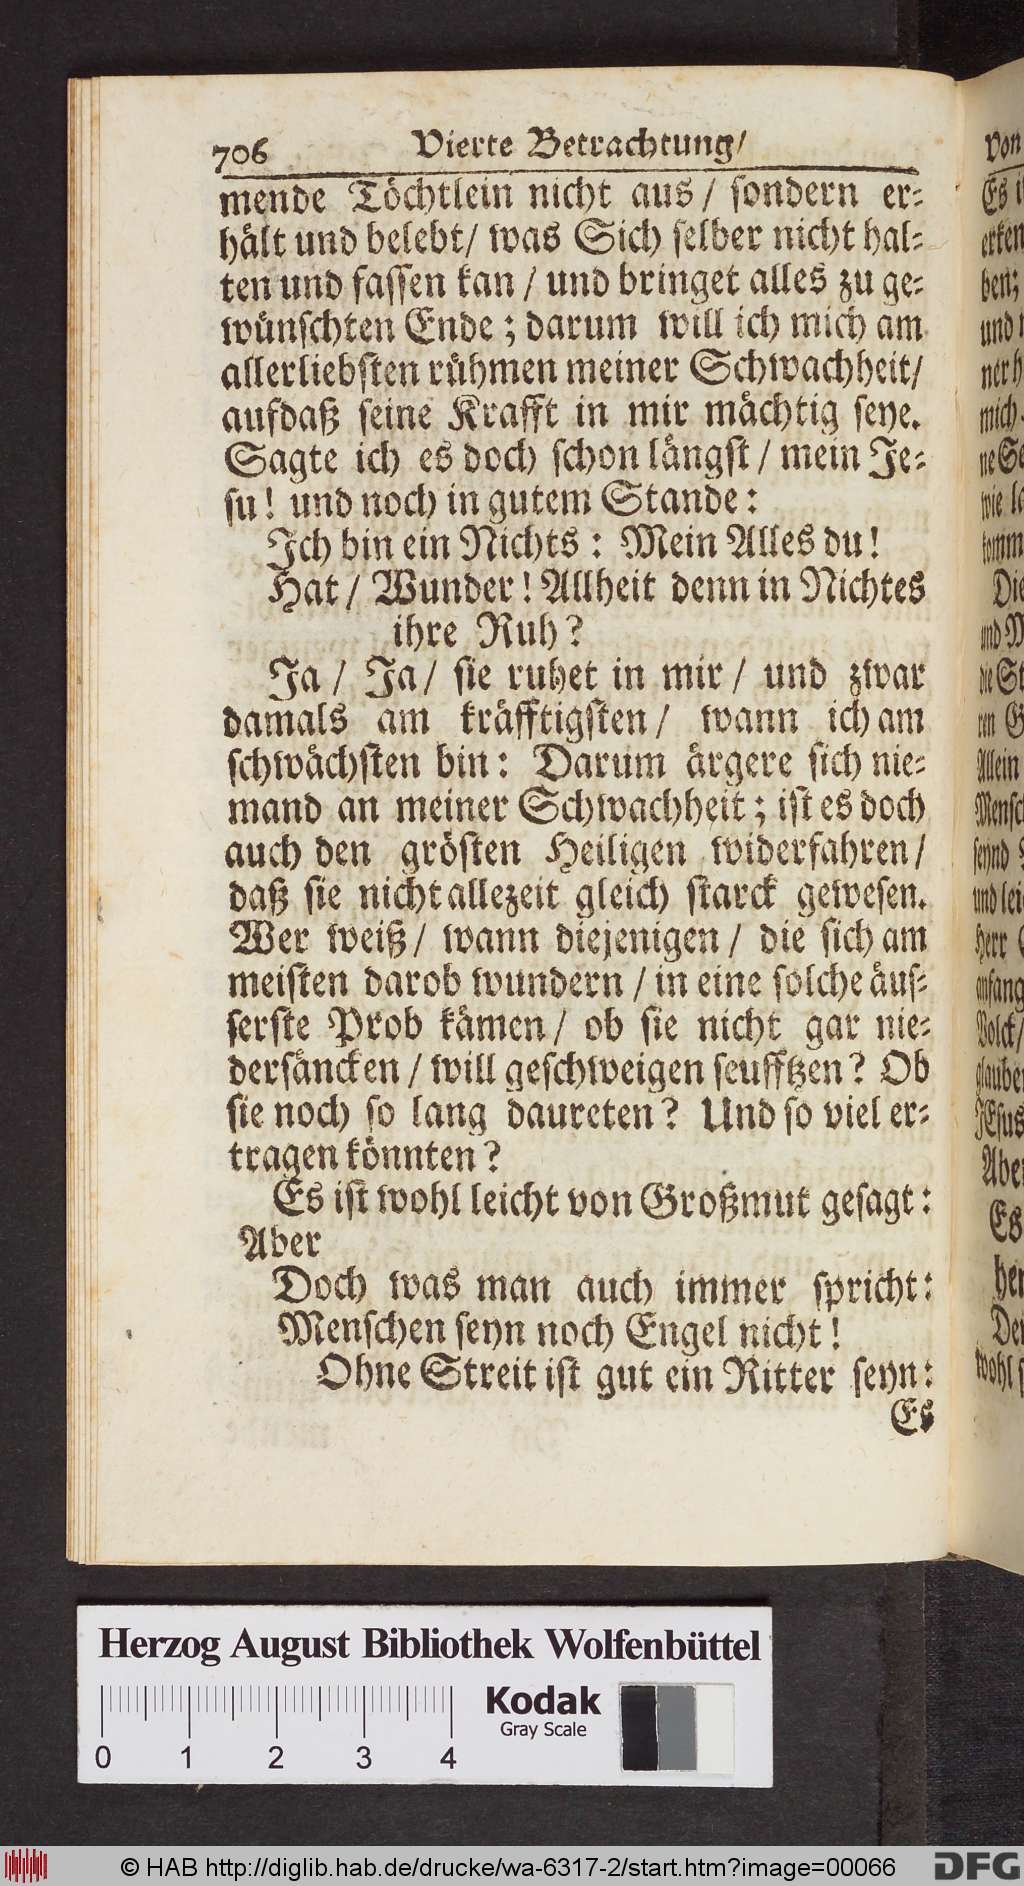 706 Vierte Betrachtung/
mende Töchtlein nicht aus / sondern er-
hält und belebt/ was Sich selber nicht hal-
ten und fassen kan / und bringet alles zu ge-
wünschten Ende ; darum will ich mich am
allerliebsten rühmen meiner Schwachheit/
aufdaß seine Krafft in mir mächtig seye.
Sagte ich es doch schon längst / mein Je-
su! und noch in gutem Stande:
Ich bin ein Nichts : Mein Alles du!
Hat / Wunder! Allheit denn in Nichtes
ihre Ruh?
Ja / Ja / sie ruhet in mir / und zwar
damals am kräfftigsten / wann ich am
schwächsten bin: Darum ärgere sich nie-
mand an meiner Schwachheit; ist es doch
auch den grösten Heiligen widerfahren/
daß sie nicht allezeit gleich starck gewesen.
Wer weiß/ wann diejenigen / die sich am
meisten darob wundern / in eine solche äus-
serste Prob kämen/ ob sie nicht gar nie-
dersäncken / will geschweigen seufftzen? Ob
sie noch so lang daureten? Und so viel er-
tragen könnten?
Es ist wohl leicht von Großmut gesagt:
Aber
Doch was man auch immer spricht:
Menschen seyn noch Engel nicht!
Ohne Streit ist gut ein Ritter seyn:
Es
Von
Es
erken
ben;
und
ner
mich
ne
wie
komm
Die
und
die
ren
Allein
Mensch
seynd
und lei
Herr
anfang
Volck/
glauben
JEsus
Aber
Es
her
Der
wohl
Herzog August Bibliothek Wolfenbüttel
Kodak
Gray Scale
0 1 2 3 4
© HAB http://diglib.hab.de/drucke/wa-6317-2/start.htm?image=00066
DFG